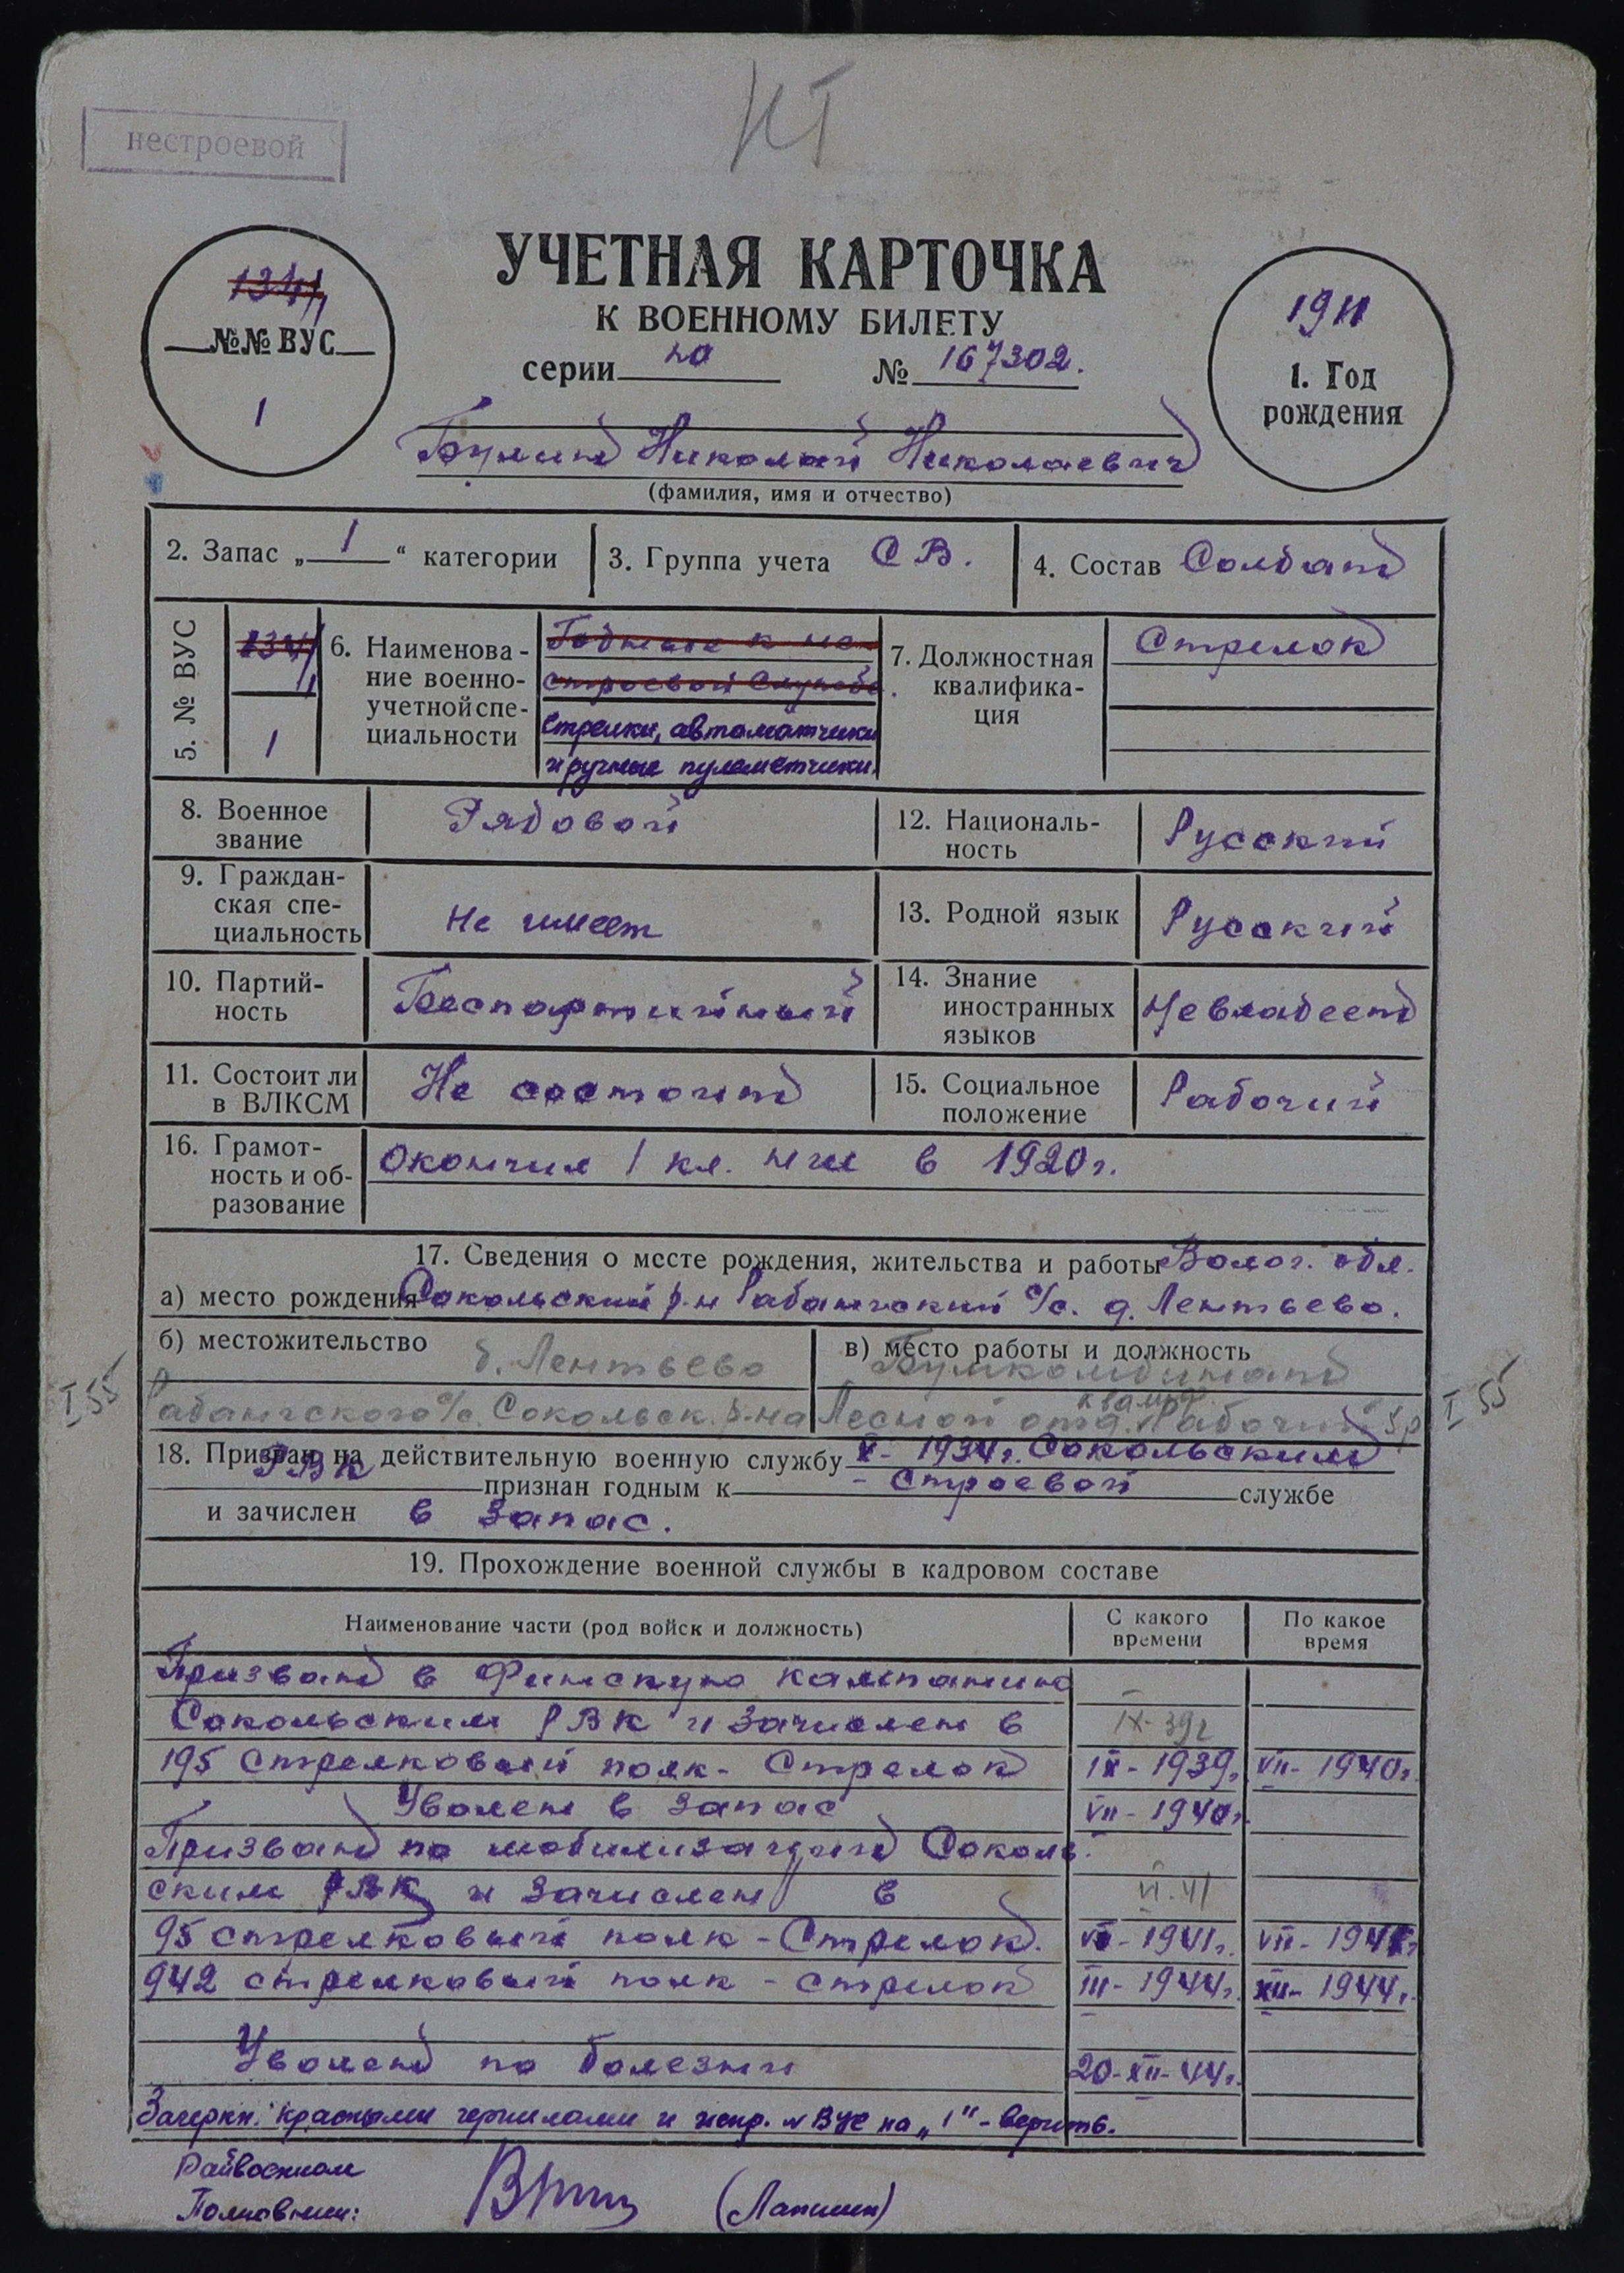 нестроевой
НГ
УЧЕТНАЯ КАРТОЧКА
К ВОЕННОМУ БИЛЕТУ
серии № 167302.
134/1
№№ ВУС
1
1911
1. Год
рождения
Николай Николаевич
(фамилия, имя и отчество)
2. Запас „ 1 “ категории
3. Группа учета СВ.
4. Состав Солдат
5. № ВУС
134/1
1
6. Наименова-
ние военно-
учетной спе-
циальности
строевой службе.
Стрелки, автоматчики
и ручные пулеметчики.
7. Должностная
квалифика-
ция
Стрелок
8. Военное
звание
Рядовой
12. Националь-
ность
Русский
9. Граждан-
ская спе-
циальность
Не имеет
13. Родной язык
Русский
10. Партий-
ность
Беспартийный
14. Знание
иностранных
языков
Не владеет
11. Состоит ли
в ВЛКСМ
Не состоит
15. Социальное
положение
Рабочий
16. Грамот-
ность и об-
разование
Окончил 1 кл. в 1920г.
17. Сведения о месте рождения, жительства и работы Волог. обл.
а) место рождения Сокольский р-н Рабангский с/с. д. Лентьево.
б) местожительство
д. Лентьево
Рабангского с/с. Сокольск. р-на
в) место работы и должность
Бумкомбинат
Лесной отд. Рабочий 5р
I 55
I 55
18. Призван на действительную военную службу X- 1934г. Сокольским
РВК признан годным к - строевой службе
и зачислен в запас.
19. Прохождение военной службы в кадровом составе
Наименование части (род войск и должность)
С какого
времени
По какое
время
Призван в Финскую кампанию
Сокольским РВК и зачислен в IX-39г
195 стрелковый полк- Стрелок IX- 1939г. VII- 1940г.
Уволен в запас VII- 1940г.
Призван по мобилизации Соколь-
ским РВК и зачислен в VI.41
95 стрелковый полк - Стрелок. VI- 1941г. VII- 1941г
942 стрелковый полк - стрелок III- 1944г. XII- 1944г.
Уволен по болезни 20-XII-44г.
Зачеркн. красными чернилами и испр. № ВУС на „1" - верить.
Райвоенком
Полковник: (Лапшин)